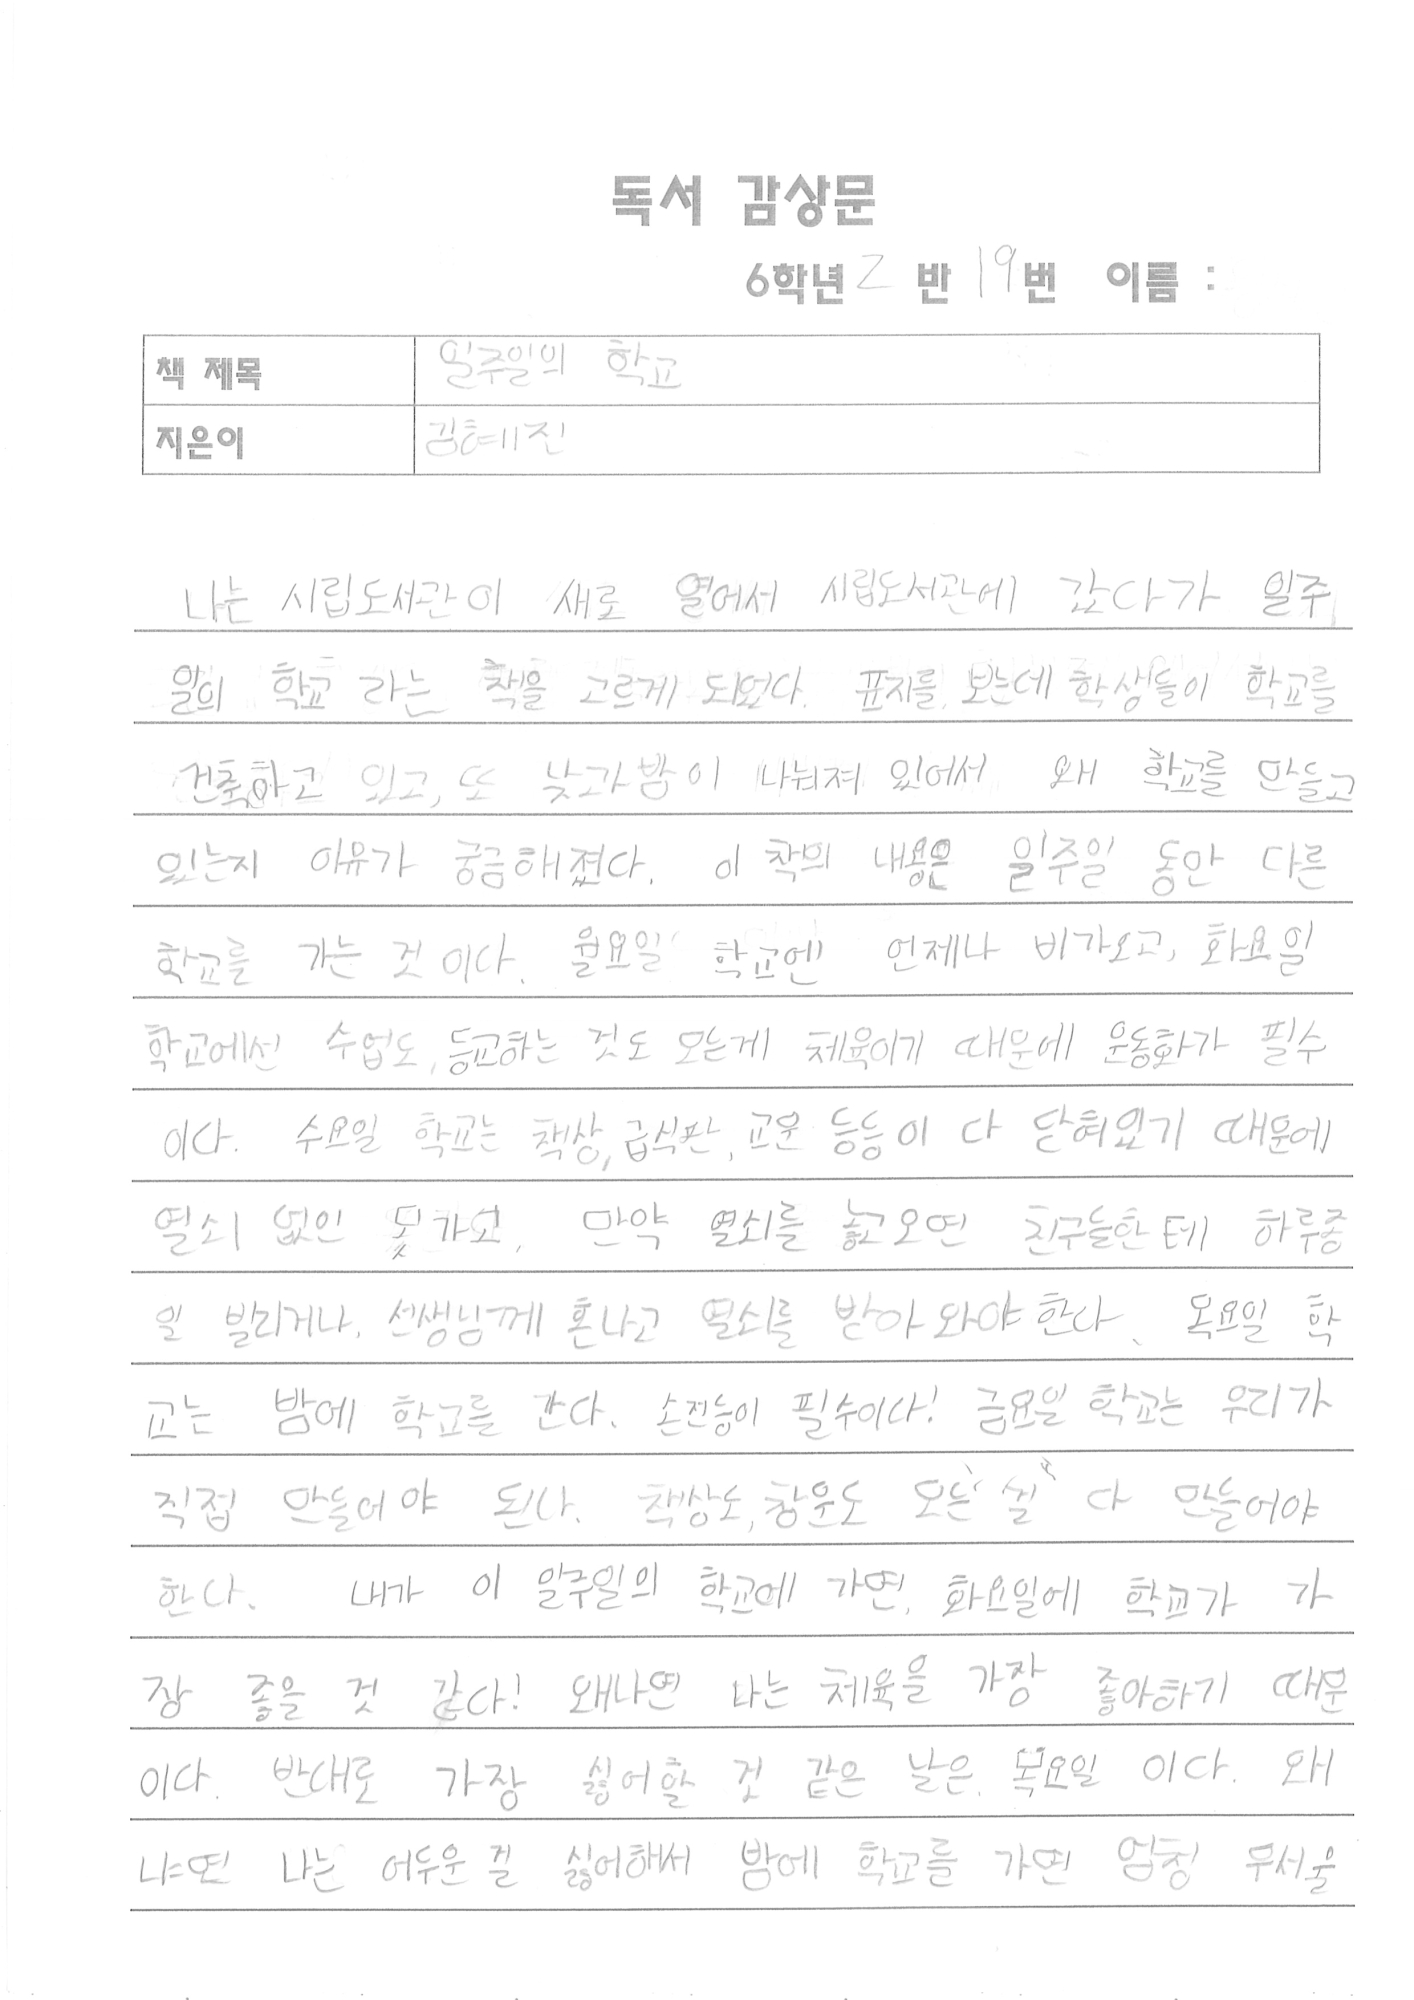 독서 감상문
6학년 2 반 19번 이름 :
책 제목 일주일의 학교
지은이 김혜진
나는 시립도서관이 새로 열어서 시립도서관에 갔다가 일주
일의 학교 라는 책을 고르게 되었다. 표지를 보는데 학생들이 학교를
건축하고 있고, 또 낮가밤이 나눠져 있어서 왜 학교를 만들고
있는지 이유가 궁금해졌다. 이 책의 내용은 일주일 동안 다른
학교를 가는 것 이다. 월요일 학교엔 언제나 비가오고, 화요일
학교에선 수업도, 등교하는 것도 모든게 체육이기 때문에 운동화가 필수
이다. 수요일 학교는 책상, 급식판, 교문 등등이 다 닫혀있기 때문에
열쇠 없인 못가고, 만약 열쇠를 놓고오면 친구들한테 하루종
일 빌리거나, 선생님께 혼나고 열쇠를 받아와야 한다. 목요일 학
교는 밤에 학교를 간다. 손전등이 필수이다! 금요일 학교는 우리가
직접 만들어야 된다. 책상도, 창문도 모든 '실' 다 만들어야
한다. 내가 이 일주일의 학교에 가면, 화요일에 학교가 가
장 좋을 것 같다! 왜냐면 나는 체육을 가장 좋아하기 때문
이다. 반대로 가장 싫어할 것 같은 날은 목요일 이다. 왜
냐면 나는 어두운 걸 싫어해서 밤에 학교를 가면 엄청 무서울